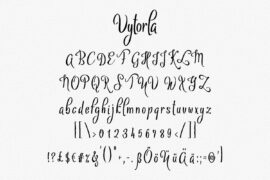 Vytorla
ABCDEFGHIJKLM
NOPQRSTUVWXYZ
abcdefghijklmnopqrstuvwxyz
[]\>0123456789</|
!?£$€#%&'()"+,-.ßÔöÑüÄä:;=@'